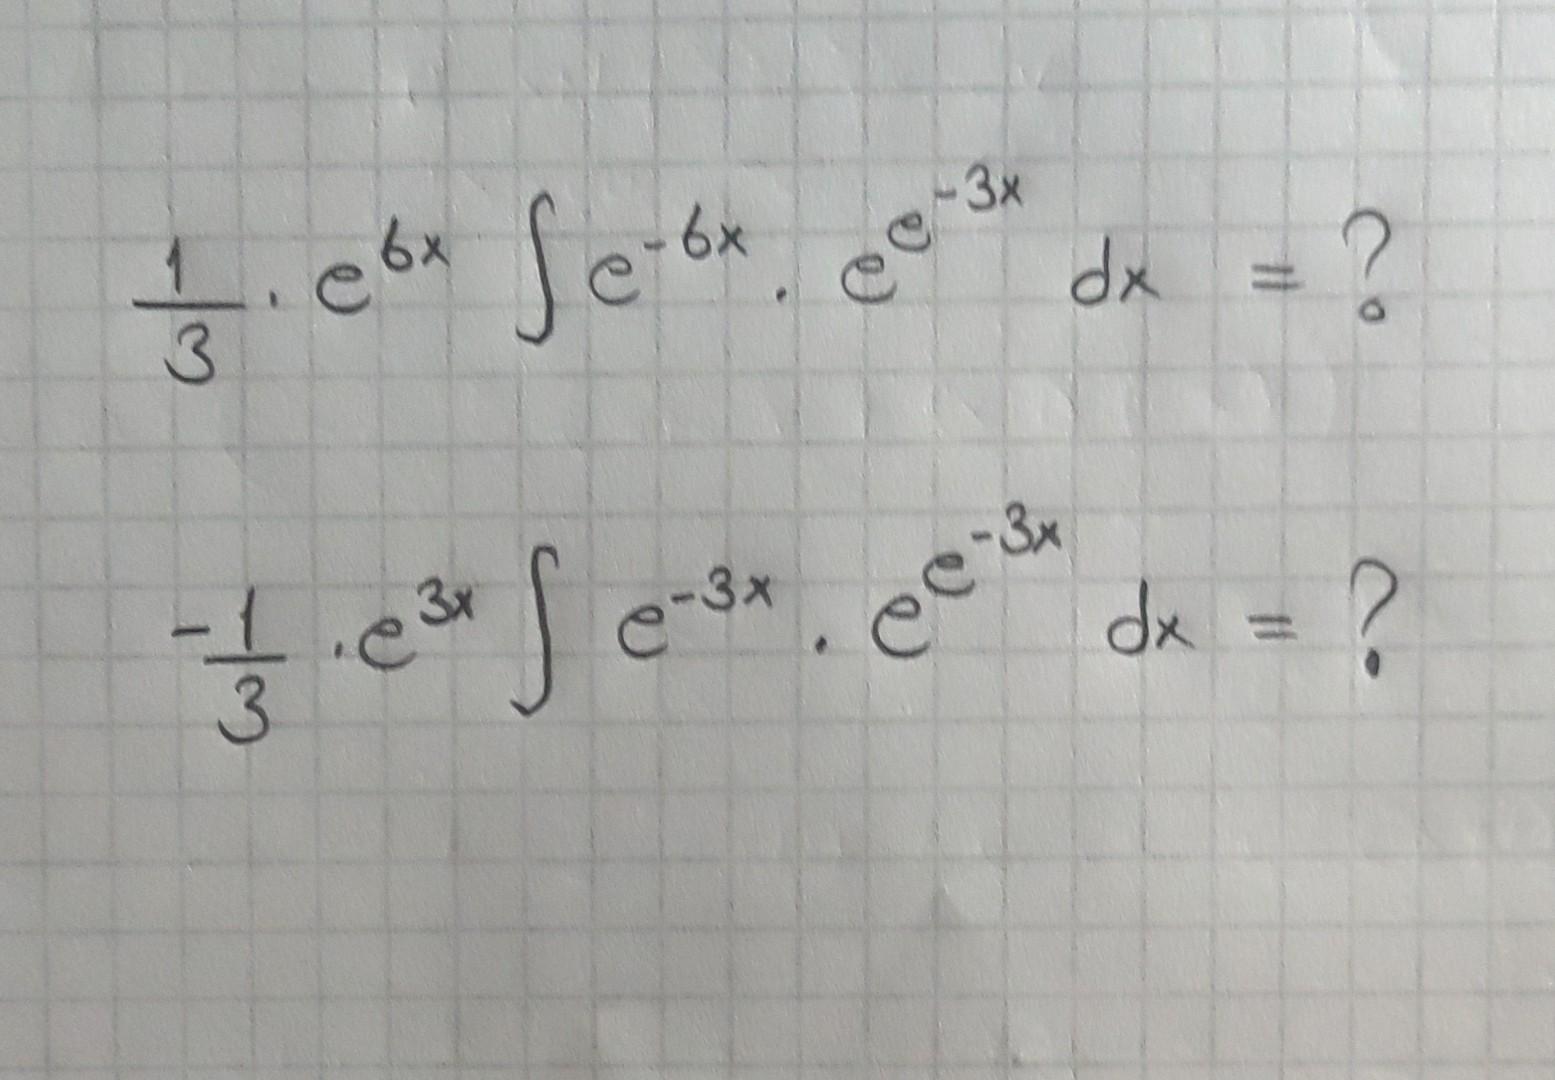 1/3 · e^{6x} ∫ e^{-6x} · e^{e^{-3x}} dx = ?
-1/3 · e^{3x} ∫ e^{-3x} · e^{e^{-3x}} dx = ?